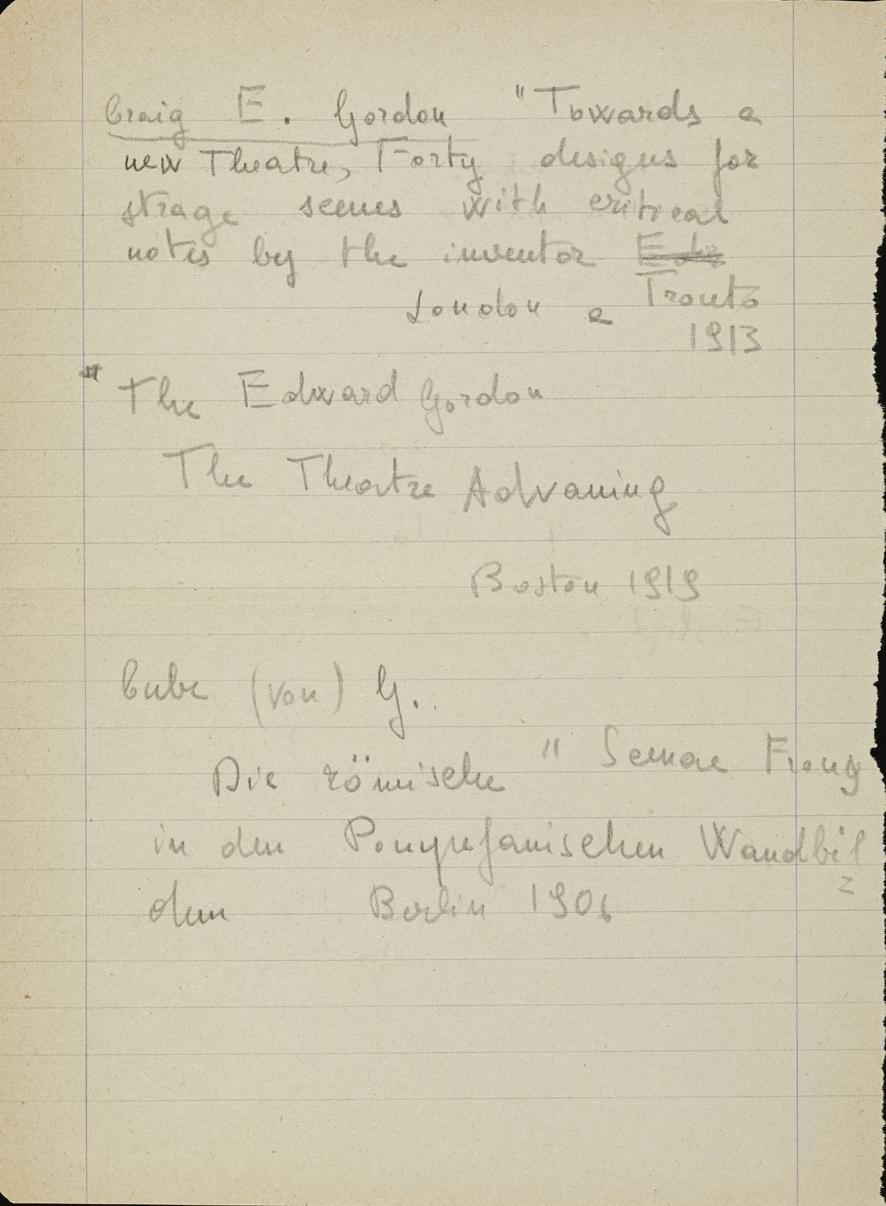 Craig E. Gordon "Towards a
new Theatre, Forty designs for
strage scenes with critical
notes by the inventor
London e Tronto
1913
" The Edward Gordon
The Theatre Advancing
Boston 1919
Cube (von) G.
Die römische " Scenae Frons
in den Pompejanischen Wandbil
dern Berlin 1906